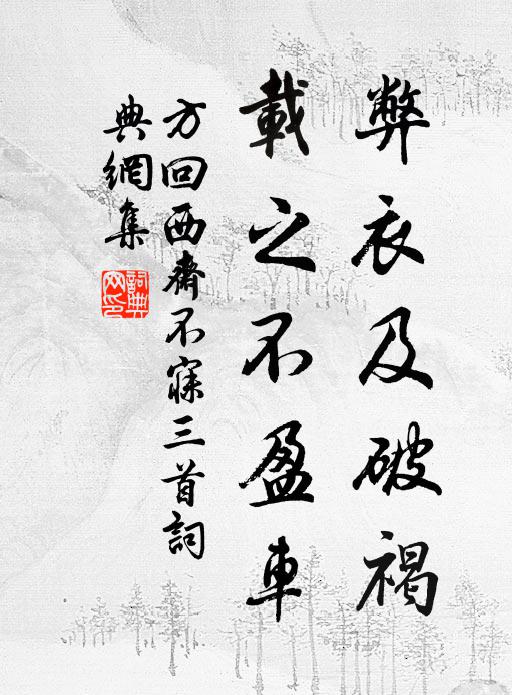 弊衣及破褐
載之不盈車
方回西齋不寐三首詞
典網集
詞典網印